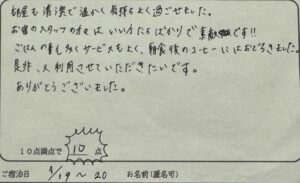 部屋も清潔で温かく気持ちよく過ごせました。
お宿のスタッフの方は いい方たちばかりで素敵です!!
ごはんの量も多くサービスもよく、朝食後のコーヒーにはおどろきました。
是非、又利用させていただきたいです。
ありがとうございました。
10点満点で 10 点
ご宿泊日 4/19〜20 お名前(匿名可)